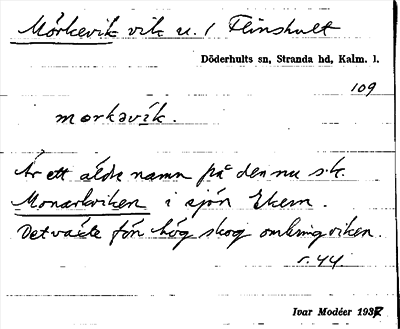 Mörkevik vik u. / Flinshult
Döderhults sn, Stranda hd, Kalm. l.
109
morkəvik.
Är ett äldre namn på den nu s.k.
Monarkviken i sjön Ekern.
Det växte förr hög skog omkring viken.
s. 44.
Ivar Modéer 1937